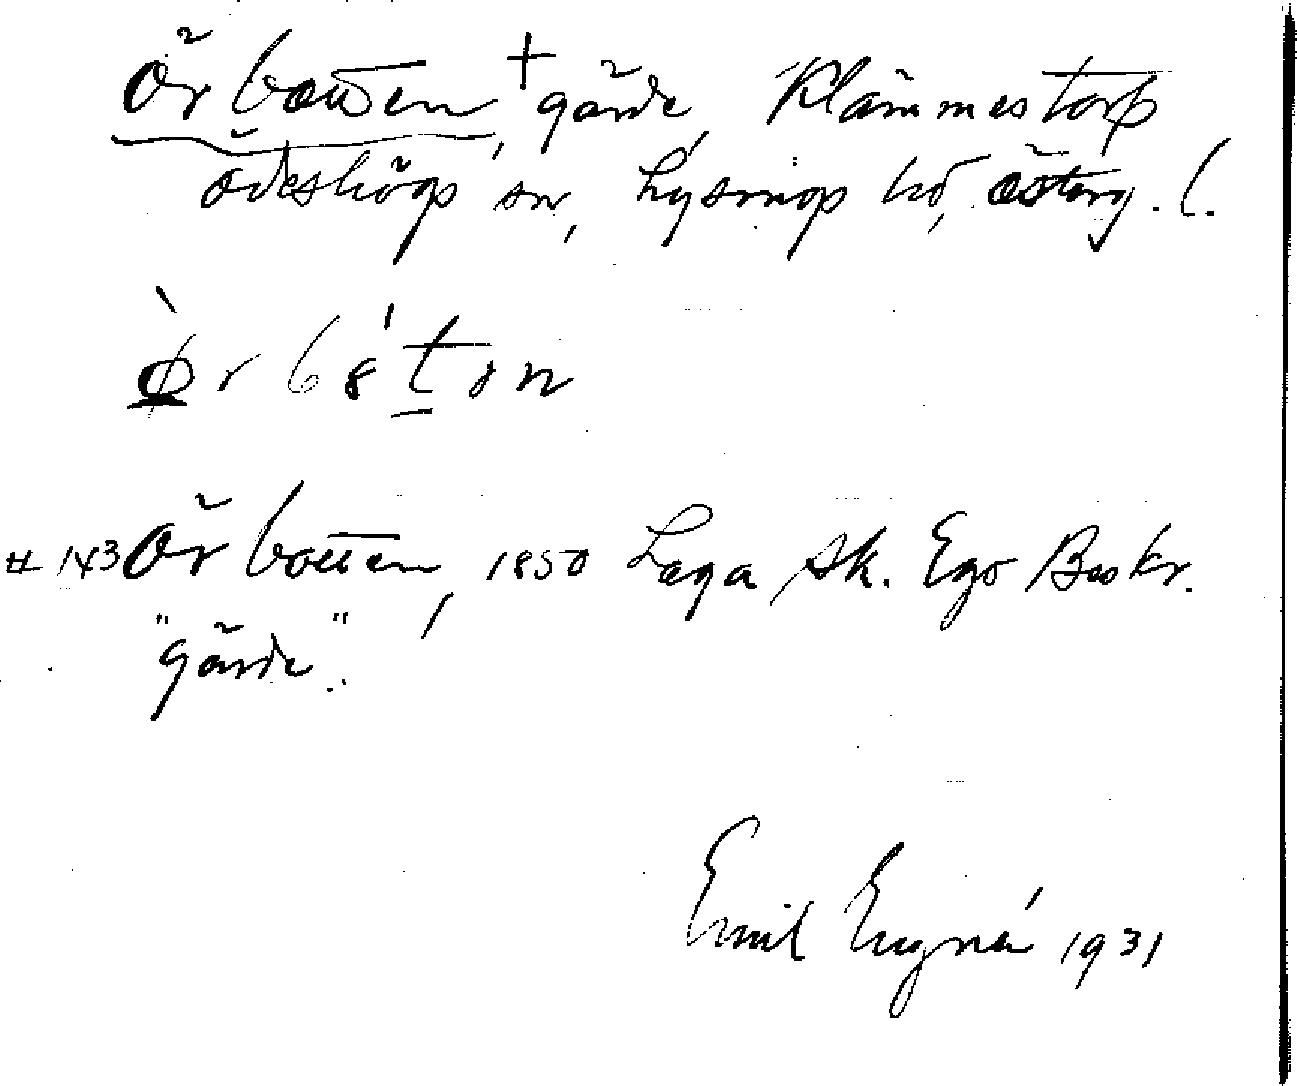 Örbotten, + gärde, Klämmestorp
Ödeshögs sn, Lysings hd, Österg. l.
# 143 Örbotten, 1850 Laga Sk. Ego Beskr.
"gärde".
Emil 1931